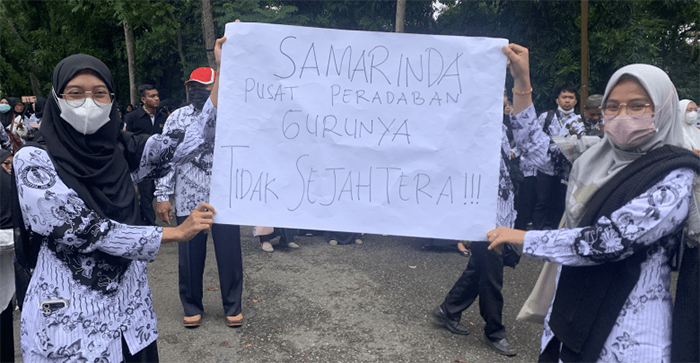 SAMARINDA
PUSAT PERADABAN
GURUNYA
TIDAK SEJAHTERA!!!